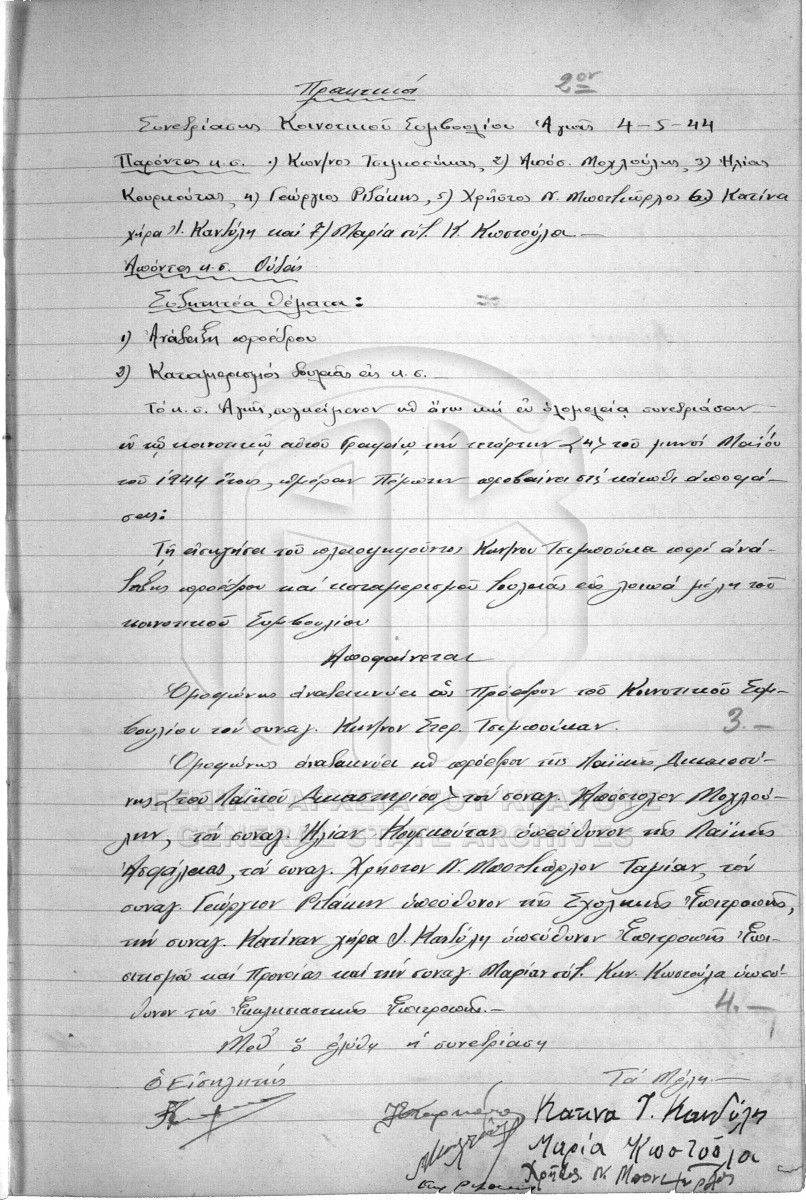 Πρακτικά 2ον
Συνεδρίασης Κοινοτικού Συμβουλίου Αγιάς 4-5-44
Παρόντες κ.σ. 1) Κων/νος Τσιμπούκας, 2) Απόσ. Μοχλούλης, 3) Ηλίας
Κουρκούτας, 4) Γεώργιος Ριζάκης, 5) Χρήστος Ν. Μποντιόρλος 6) Κατίνα
χήρα Ι. Κανδύλη καί 7) Μαρία σύζ. Κ. Κωστούλα —
Απόντες κ.σ. Ουδείς
Συζητητέα θέματα:
1) Ανάδειξη προέδρου
2) Καταμερισμός δουλειάς εις κ.σ.
Τό κ.σ. Αγιάς, συγκείμενον ως άνω καί εν ολομελεία συνεδριάσαν
εν τω κοινοτικώ αυτού Γραφείω την τετάρτην <4> του μηνός Μαΐου
του 1944 έτους, ημέραν Πέμπτην προβαίνει στις κάτωθι αποφά-
σεις:
Τη εισηγήσει του πλειοψηφούντος Κων/νου Τσιμπούκα περί ανά-
δειξης προέδρου καί καταμερισμού δουλειάς εις λοιπά μέλη του
κοινοτικού Συμβουλίου
Αποφαίνεται
Ομοφώνως αναδεικνύει ως Πρόεδρον του Κοινοτικού Συμ-
βουλίου τον συναγ. Κων/νον Στερ. Τσιμπούκαν. 3.-
Ομοφώνως αναδεικνύει ως πρόεδρον της Λαϊκής Δικαιοσύ-
νης <του Λαϊκού Δικαστηρίου> τον συναγ. Απόστολον Μοχλού-
λην, τον συναγ. Ηλίαν Κουρκούταν υπεύθυνον της Λαϊκής
Ασφάλειας, τον συναγ. Χρήστον Ν. Μποντιόρλον Ταμίαν, τον
συναγ. Γεώργιον Ριζάκην υπεύθυνον της Σχολικής Επιτροπής,
την συναγ. Κατίναν χήρα Ι. Κανδύλη υπεύθυνον Επιτροπής Επι-
σιτισμού καί Προνοίας καί την συναγ. Μαρίαν σύζ. Κων. Κωστούλα υπεύ-
θυνον της Εκκλησιαστικής Επιτροπής.— 4.-
Μεθ' ό ελύθη η συνεδρίαση
Ο Εισηγητής Τά Μέλη
Κατινα Ι. Κανδύλη
Μαρία Κωστούλα
Χρήστος Ν. Μποντιόρλος
ΓΕΝΙΚΑ ΑΡΧΕΙΑ ΤΟΥ ΚΡΑΤΟΥΣ
GENERAL STATE ARCHIVES